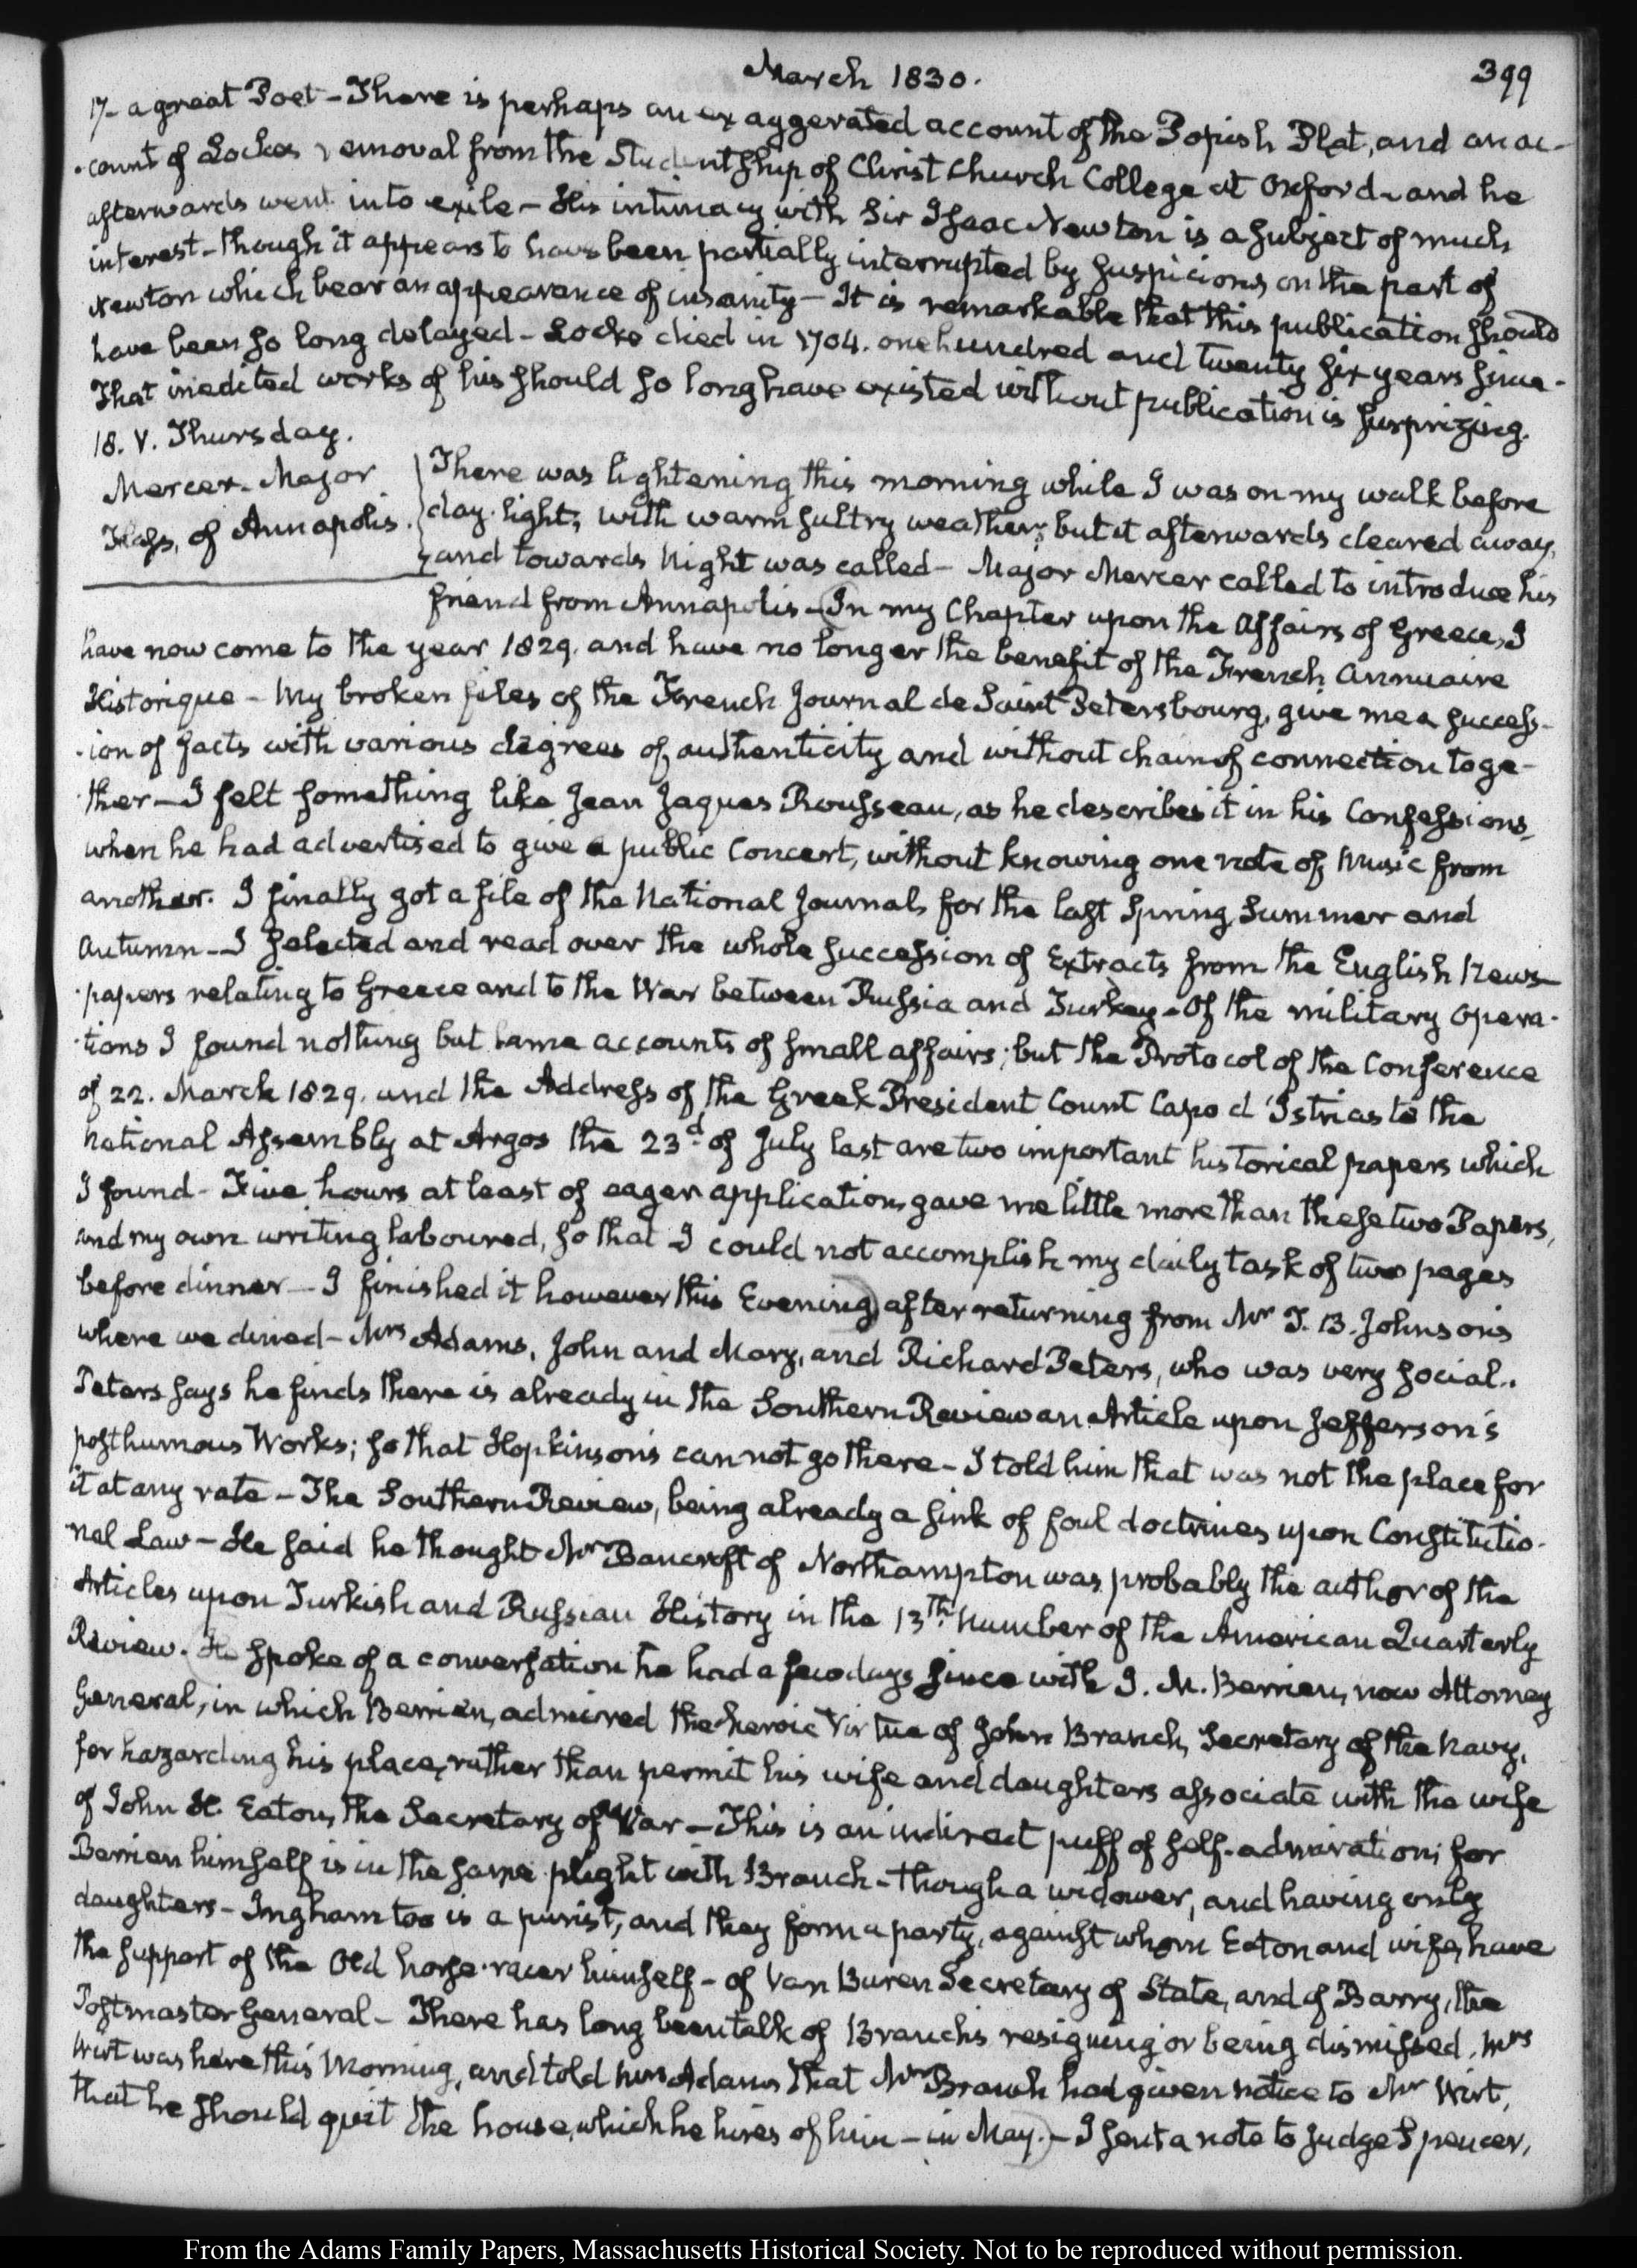 March 1830.
399
17- a great Poet - There is perhaps an exaggerated account of the Popish Plot, and an ac-
-count of Lockes removal from the Studentship of Christ Church College at Oxford - and he
afterwards went into exile - His intimacy with Sir Isaac Newton is a subject of much
interest - though it appears to have been partially interrupted by suspicions on the part of
Newton which bear an appearance of insanity - It is remarkable that this publication should
have been so long delayed - Locke died in 1704. one hundred and twenty six years since -
That inedited works of his should so long have existed without publication is surprizing.
18. V. Thursday.
Mercer. Major
Hays, of Annapolis.
There was lightening this morning while I was on my walk before
day-light; with warm sultry weather; but it afterwards cleared away,
and towards Night was called - Major Mercer called to introduce his
friend from Annapolis - In my Chapter upon the Affairs of Greece, I
have now come to the year 1829. and have no longer the benefit of the French Annuaire
Historique - My broken files of the French Journal de Saint Petersbourg, give me a success-
-ion of facts with various degrees of authenticity and without chain of connection toge-
-ther - I felt something like Jean Jaques Rousseau, as he describes it in his Confessions,
when he had advertised to give a public Concert, without knowing one note of Music from
another. I finally got a file of the National Journals for the last Spring Summer and
Autumn - I selected and read over the whole succession of Extracts from the English News-
-papers relating to Greece and to the War between Russia and Turkey - Of the military opera-
-tions I found nothing but lame accounts of small affairs; but the Protocol of the Conference
of 22. March 1829. and the Address of the Greek President Count Capo d'Istrias to the
National Assembly at Argos the 23d. of July last are two important historical papers which
I found - Five hours at least of eager application, gave me little more than these two Papers,
and my own writing laboured, so that I could not accomplish my daily task of two pages
before dinner - I finished it however this Evening, after returning from Mr T. B. Johnson's
where we dined - Mrs Adams, John and Mary, and Richard Peters, who was very social.
Peters says he finds there is already in the Southern Review an Article upon Jefferson's
posthumous Works; so that Hopkinson's cannot go there - I told him that was not the place for
it at any rate - The Southern Review, being already a sink of foul doctrines upon Constitutio-
-nal Law - He said he thought Mr Bancroft of Northampton was probably the author of the
Articles upon Turkish and Russian History in the 13th. Number of the American Quarterly
Review. He spoke of a conversation he had a few days since with J. M. Berrien, now Attorney
General, in which Berrien, admired the heroic Virtue of John Branch, Secretary of the Navy,
for hazarding his place, rather than permit his wife and daughters associate with the wife
of John H. Eaton, the Secretary of War - This is an indirect puff of self-admiration; for
Berrien himself is in the same plight with Branch - though a widower, and having only
daughters - Ingham too is a purist, and they form a party, against whom Eaton and wife, have
the support of the Old horse-racer himself - of Van Buren Secretary of State, and of Barry, the
Postmaster General - There has long been talk of Branch's resigning or being dismissed. Mrs
Wirt was here this Morning, and told Mrs Adams that Mr Branch had given notice to Mr Wirt,
that he should quit the house, which he hires of him - in May. - I sent a note to Judge Spencer,
From the Adams Family Papers, Massachusetts Historical Society. Not to be reproduced without permission.